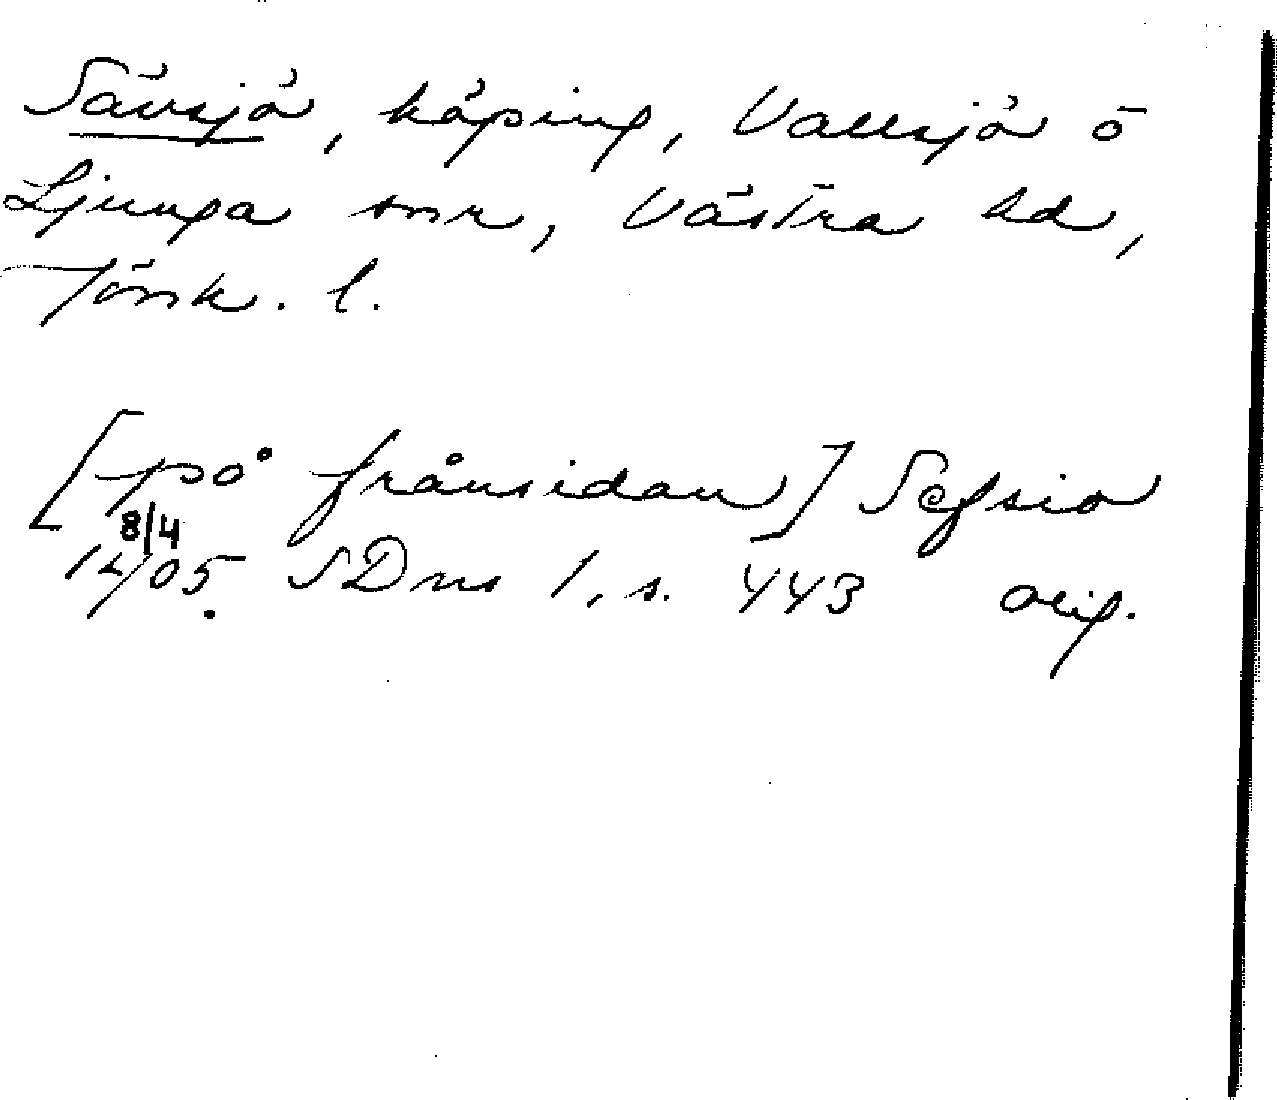 Sävsjö, köping, Vallsjö o
Ljunga snr, Västra hd,
Jönk. l.
[på frånsidan] Sefsio
8/4
14/05. SDns 1, s. 443 orig.